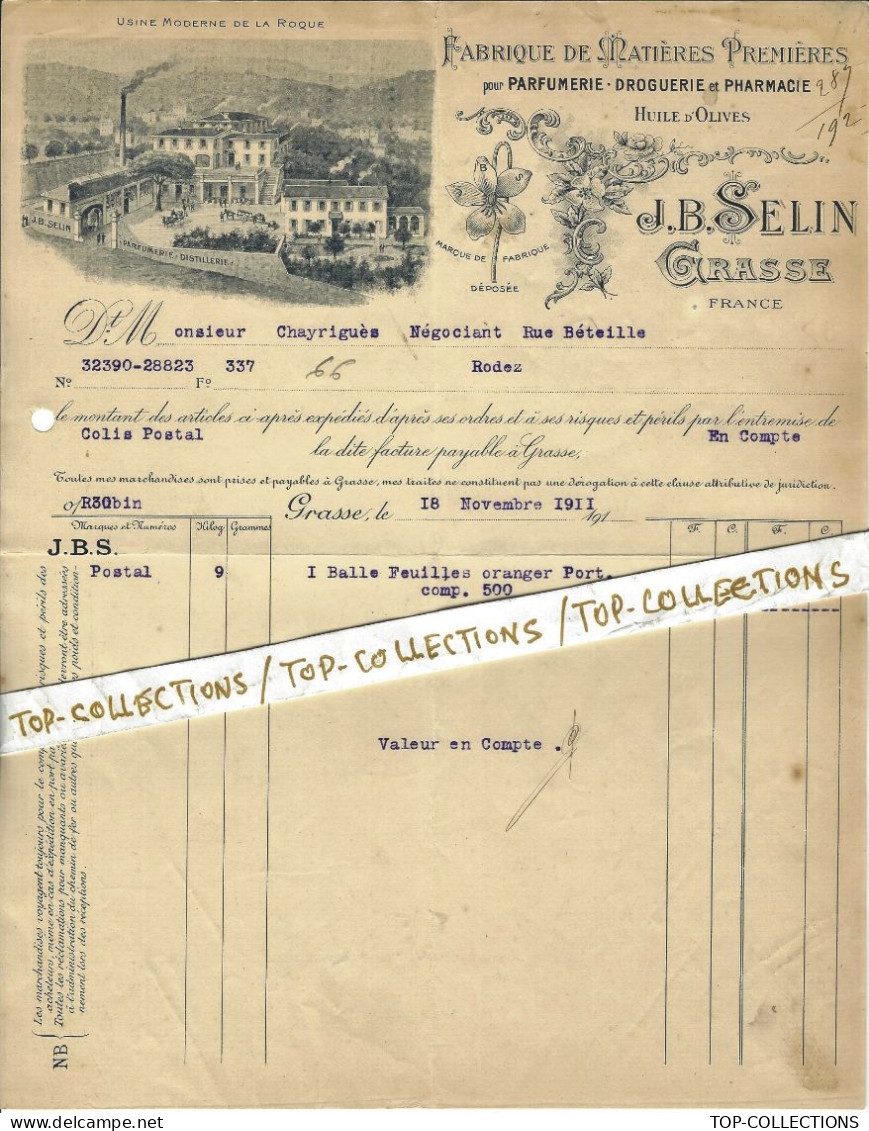 Usine Moderne de la Roque
J.B. SELIN
PARFUMERIE, DISTILLERIE
Fabrique de Matières Premières
pour PARFUMERIE - DROGUERIE et PHARMACIE
Huile d'Olives
287
192
J B S
MARQUE DE FABRIQUE
DÉPOSÉE
J.B. Selin
Grasse
FRANCE
Dt M onsieur Chayriguès Négociant Rue Béteille
32390-28823 337 66 Rodez
No Fo
le montant des articles ci-après expédiés d'après ses ordres et à ses risques et périls par l'entremise de
Colis Postal En Compte
la dite facture payable à Grasse,
Toutes mes marchandises sont prises et payables à Grasse, mes traites ne constituent pas une dérogation à cette clause attributive de juridiction.
Grasse, le I8 Novembre I9II 191
Marques et Numéros Kilog Grammes F. C. F. C.
J.B.S.
Postal 9 I Balle Feuilles oranger Port.
comp. 500
TOP-COLLECTIONS / TOP-COLLECTIONS / TOP-COLLECTIONS
Valeur en Compte .
NB
Les marchandises voyagent toujours pour le comp risques et périls des
acheteurs, même en cas d'expédition en port pa
Toutes les réclamations pour manquants ou avarie devront être adressées
à l'administration du chemin de fer ou autres que s poids et condition-
nement lors des réceptions.
TOP-COLLECTIONS